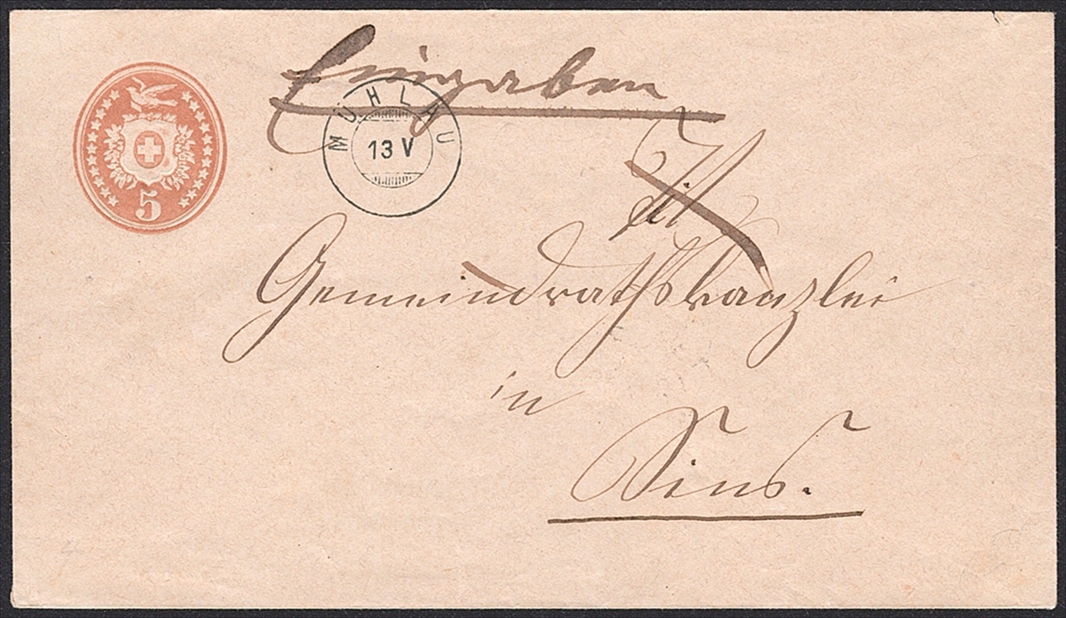 Eingaben
MÜHLAU
13 V
5
Gemeindrathskanzlei
in
Sins.